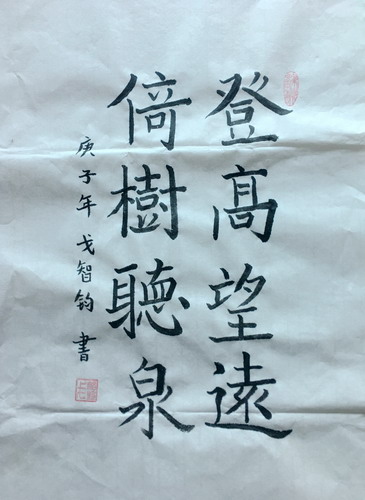 登高望遠
倚樹聽泉
庚子年戈智鈞書